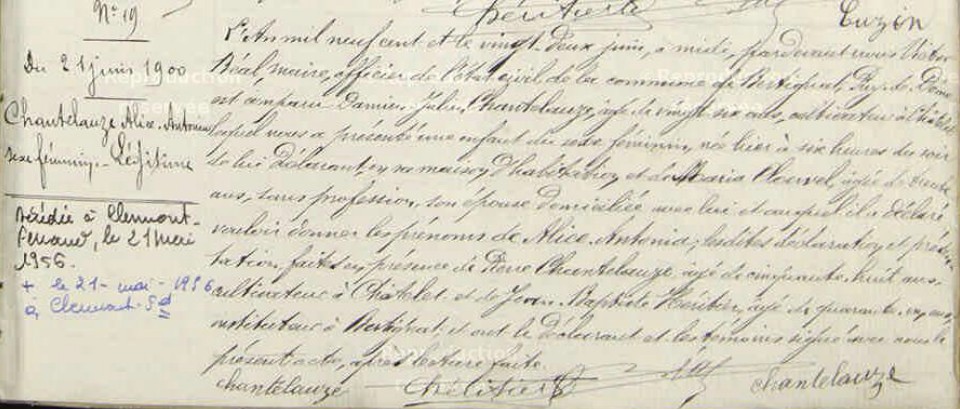 Nº 19
Du 21 juin 1900
Chantelauze Alice-Antonia
sexe féminin - Légitime
Décédée à Clermont-
Ferrand, le 21 mai
1956.
+ le 21 - mai - 1956
à Clermont-Fd
Luzin
L'An mil neuf cent et le vingt-deux juin, à midi, pardevant nous
Béal, maire, officier de l'état civil de la commune de Bertignat, Puy-de-Dôme
est comparu Damien Julien Chantelauze, âgé de vingt six ans, cultivateur à Châtelet
lequel nous a présenté une enfant du sexe féminin, née hier à six heures du soir
de lui déclarant, en sa maison d'habitation, et de Maria, âgée de trente
ans, sans profession, son épouse domiciliée avec lui et auquel il a déclaré
vouloir donner les prénoms de Alice Antonia; lesdites déclaration et présen-
tation faites en présence de Pierre Chantelauze, âgé de cinquante huit ans,
cultivateur à Châtelet et de Jean-Baptiste, âgé de quarante ans,
instituteur à Bertignat; et ont le déclarant et les témoins signé avec nous le
présent acte, après lecture faite.
Chantelauze
Chantelauze